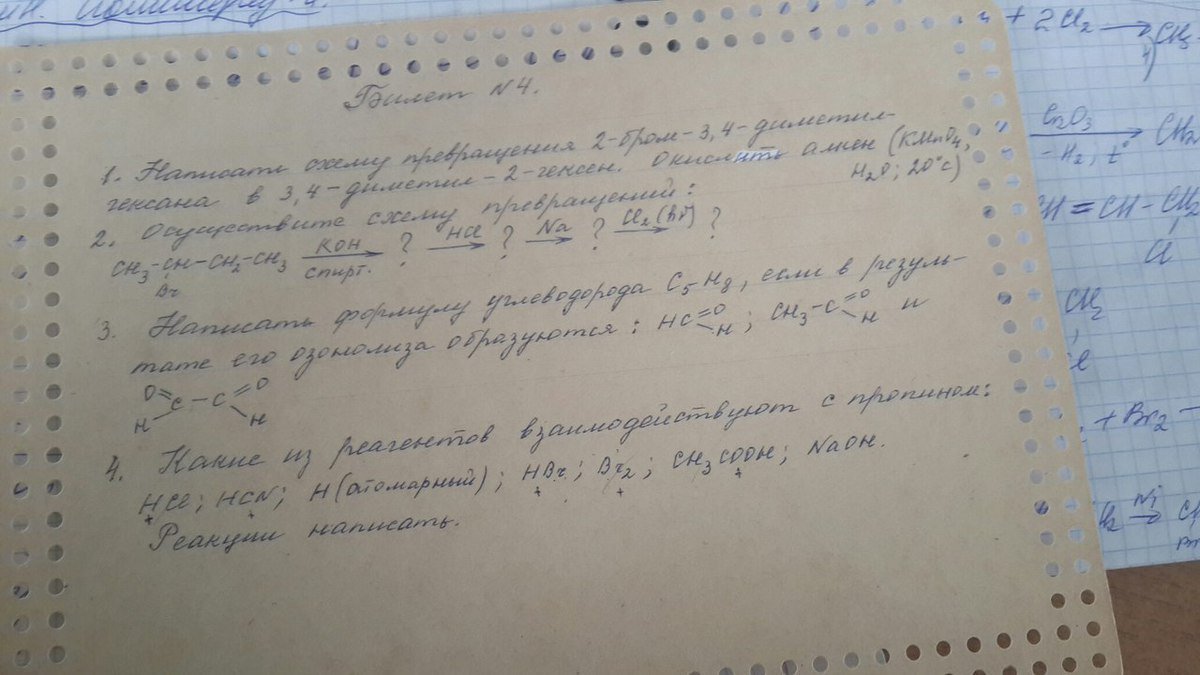 Билет N4.
1. Написать схему превращения 2-бром-3,4-диметил-
гексана в 3,4-диметил-2-гексен. Окислить алкен (KMnO4,
H2O; 20°C)
2. Осуществите схему превращений:
CH3-CH-CH2-CH3 KOH спирт. → ? HCl → ? Na → ? Cl2(hν) → ?
Br
3. Написать формулу углеводорода C5H8, если в резуль-
тате его озонолиза образуются: HC=O H; CH3-C=O H и
O=C-C=O
H H
4. Какие из реагентов взаимодействуют с пропином:
HCl; HCN; H(атомарный); HBr; Br2; CH3COOH; NaOH.
+ + + + +
Реакции написать.
+ 2Cl2 → CH3
Cr2O3
-H2; t° → CH2
CH=CH-CH2
Cl
CH2
+ Br2
Ni →